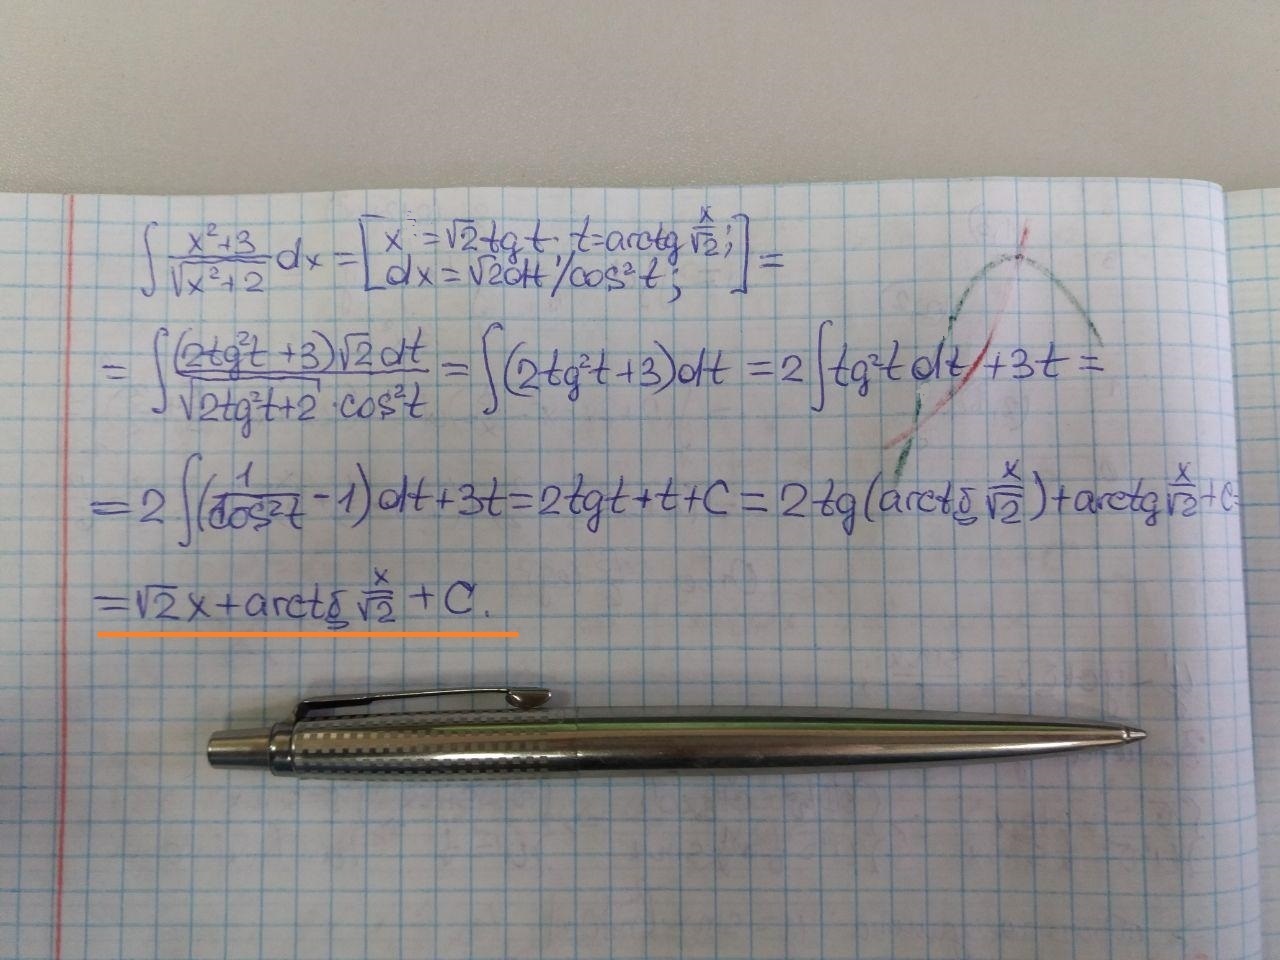 ∫ (x²+3)/√(x²+2) dx = [x = √2 tg t; t = arctg x/√2;
dx = √2 dt/cos²t;] =
= ∫ (2tg²t + 3)√2 dt / (√(2tg²t+2) · cos²t) = ∫(2tg²t+3)dt = 2∫tg²t dt + 3t =
= 2∫(1/cos²t - 1)dt + 3t = 2tgt + t + C = 2tg(arctg x/√2) + arctg x/√2 + C =
= √2x + arctg x/√2 + C.